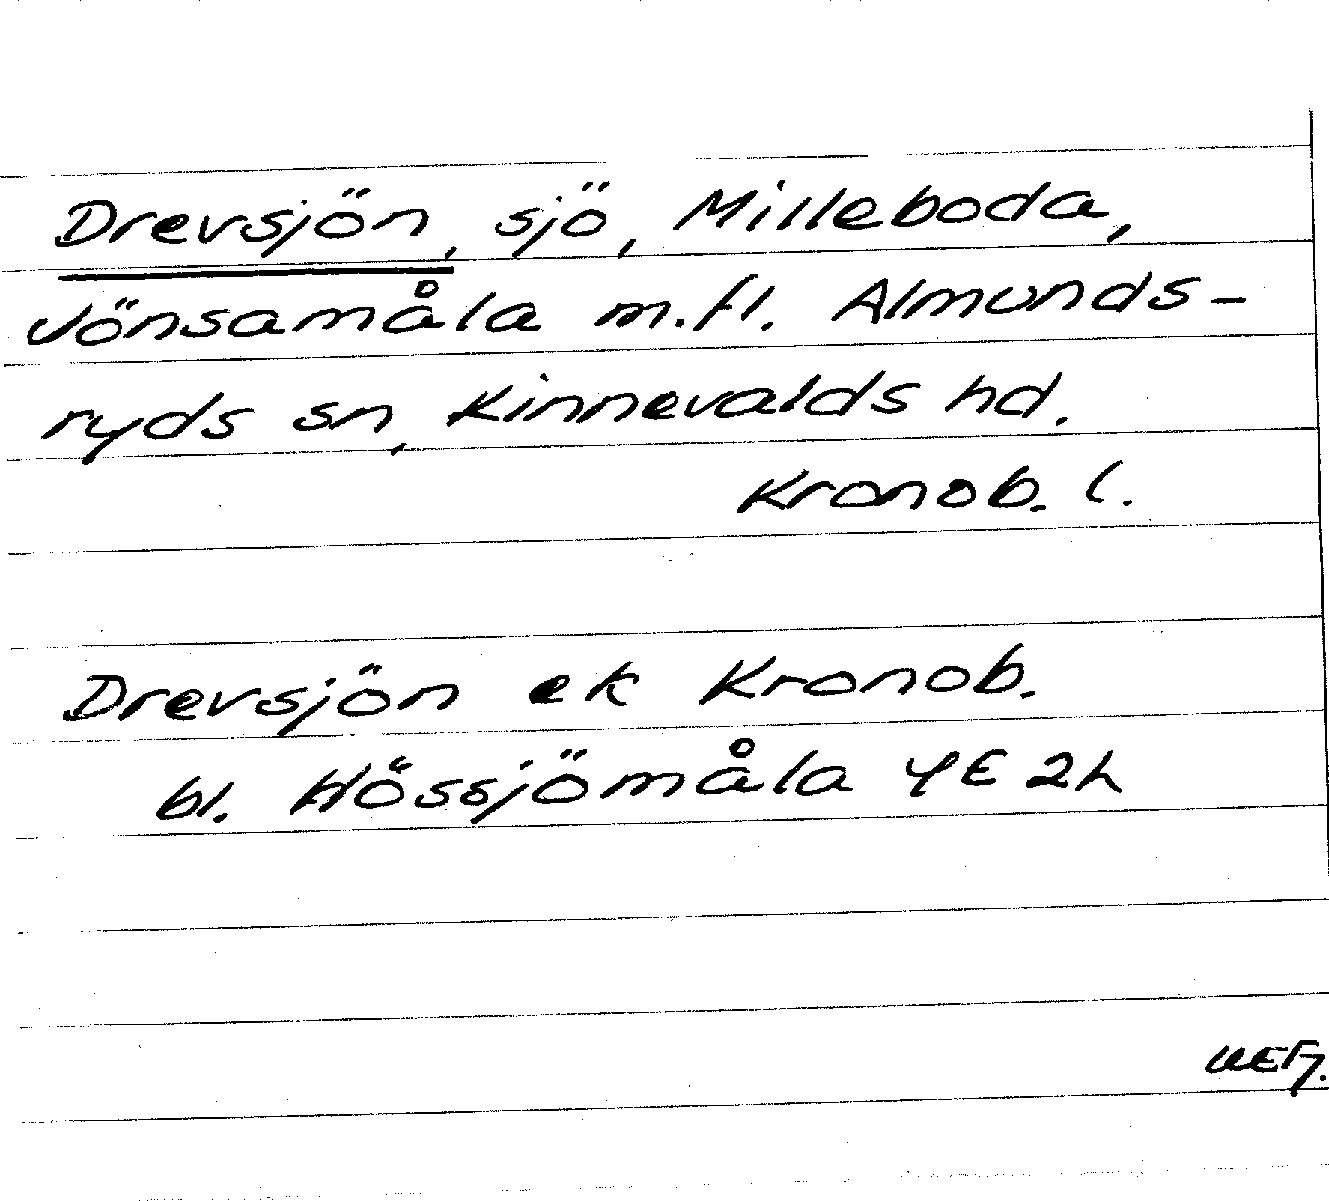 Drevsjön, sjö, Milleboda,
Jönsamåla m.fl. Almunds-
ryds sn, Kinnevalds hd.
Kronob. l.
Drevsjön ek Kronob.
bl. Hössjömåla 4E 2h